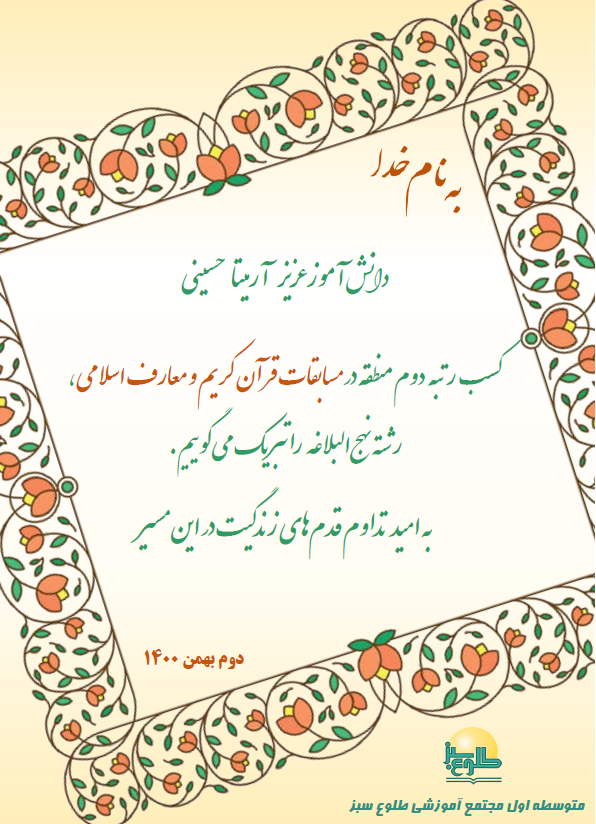 به نام خدا
دانش آموز عزیز آرمیتا حسینی
کسب رتبه دوم منطقه در مسابقات قرآن کریم و معارف اسلامی،
رشته نهج البلاغه را تبریک می گوییم.
به امید تداوم قدم های زندگیت در این مسیر
دوم بهمن ۱۴۰۰
طلوع سبز
متوسطه اول مجتمع آموزشی طلوع سبز